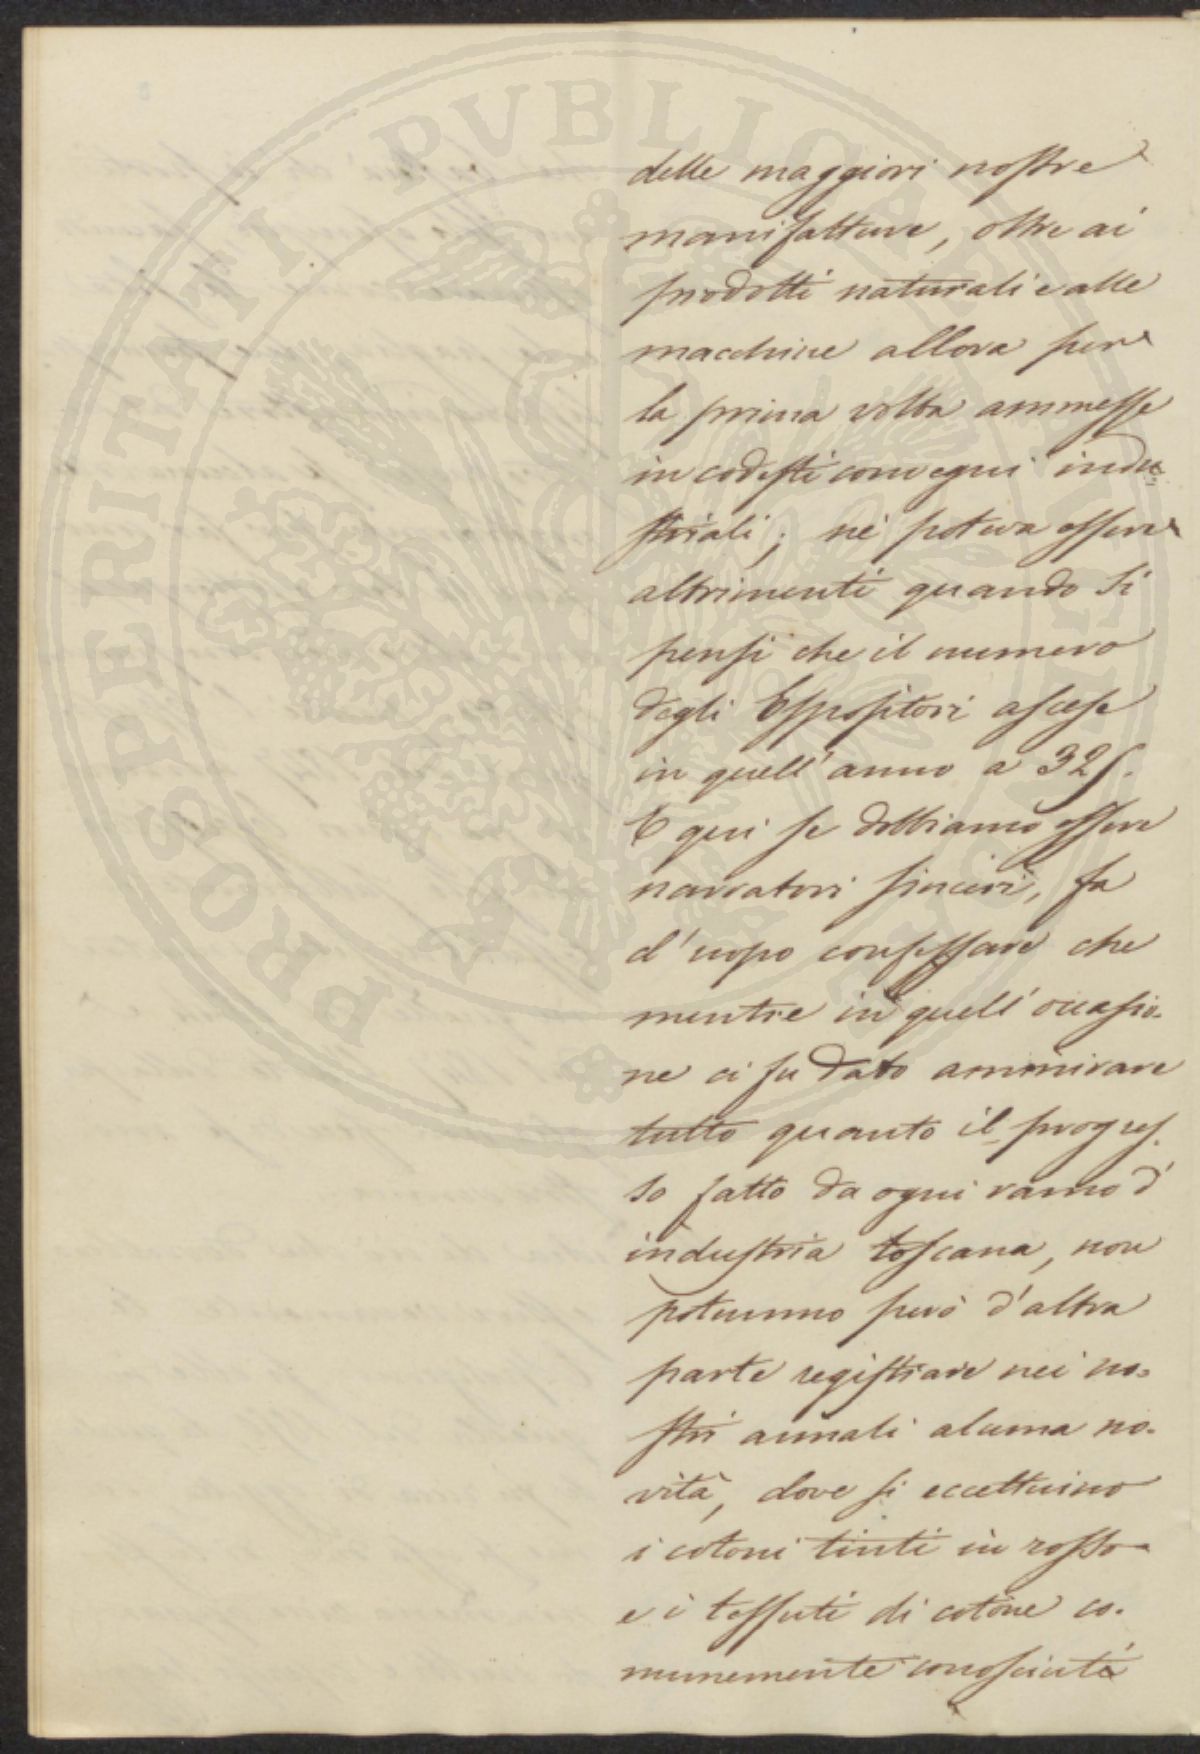 PROSPERITATI PVBLICAE AVGENDAE
delle maggiori nostre
manifatture, oltre ai
prodotti naturali e alle
macchine allora per
la prima volta ammesse
in codesti convegni indu
striali; nè poteva essere
altrimenti quando si
pensi che il numero
degli Espositori ascese
in quell'anno a 325.
E qui se dobbiamo essere
narratori sinceri, fa
d'uopo confessare che
mentre in quell'occasio-
ne ci fu dato ammirare
tutto quanto il progres-
so fatto da ogni ramo d'
industria toscana, non
potemmo però d'altra
parte registrare nei no-
stri annali alcuna no-
vità, dove si eccettuino
i cotoni tinti in rosso
e i tessuti di cotone co-
munemente conosciuti